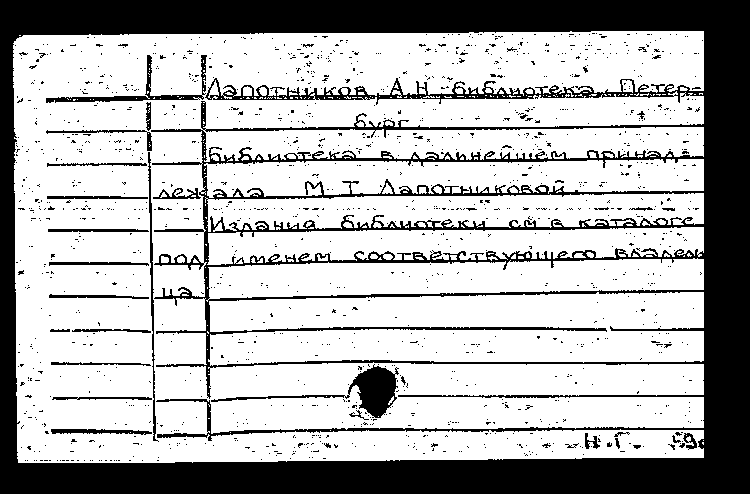 Лапотников, А.Н., библиотека. Петер-
бург
Библиотека в дальнейшем принад-
лежала М.Т. Лапотниковой.
Издания библиотеки см в каталоге
под именем соответствующего владель
ца
Н.Г. 59